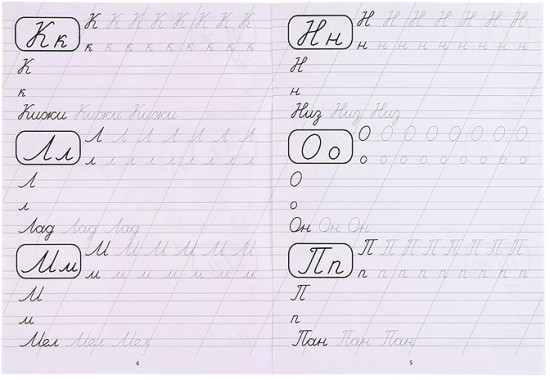 Кк К К К К К К К К
к к к к к к к к
К
к
Кижи Кижи Кижи
Лл Л Л Л Л Л Л Л Л
л л л л л л л л
Л
л
Лад Лад Лад
Мм М М М М М М М
м м м м м м м м
М
м
Мел Мел Мел
4
Нн Н Н Н Н Н Н Н Н
н н н н н н н н
Н
н
Низ Низ Низ
Оо О О О О О О О О
о о о о о о о о
О
о
Он Он Он
Пп П П П П П П П П
п п п п п п п п
П
п
Пан Пан Пан
5